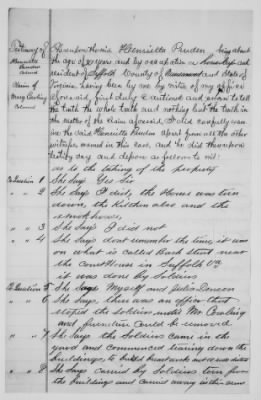 Testimony of
Henrietta
Pruden
Colored
Claim of
Mary Cowling
Colored
Thereupon the said Henrietta Pruden being about
the age of years and by occupation a housekeeper and
resident of Suffolk County of Nansemond and State of
Virginia, having been by me by virtue of my office
aforesaid, first duly cautioned and sworn to tell
the truth the whole truth and nothing but the truth in
the matter of the claim aforesaid, I did carefully exam-
ine the said Henrietta Pruden apart from all the other
witnesses named in this case, and he did thereupon
testify and depose as follows to wit:
as to the taking of the property
To Question 1 She Says Yes Sir
" " 2 She Says I did, the House was torn
down, the Kitchen also and the
smokhouse,
" " 3 She Says I did not
" " 4 She Says dont remember the time, it was
on what is called Back Street near
the Courthouse in Suffolk Va
it was done by Soldiers
To Question 5 She Says Myself and
" " 6 She Says, there was an officer that
stoped the soldiers until Mr
and furniture could be removed
" " 7 She Says the Soldiers came in the
yard and commenced tearing down the
buildings, to build
" " 8 She Says carried by Soldiers torn from
the buildings and carried away in their arms